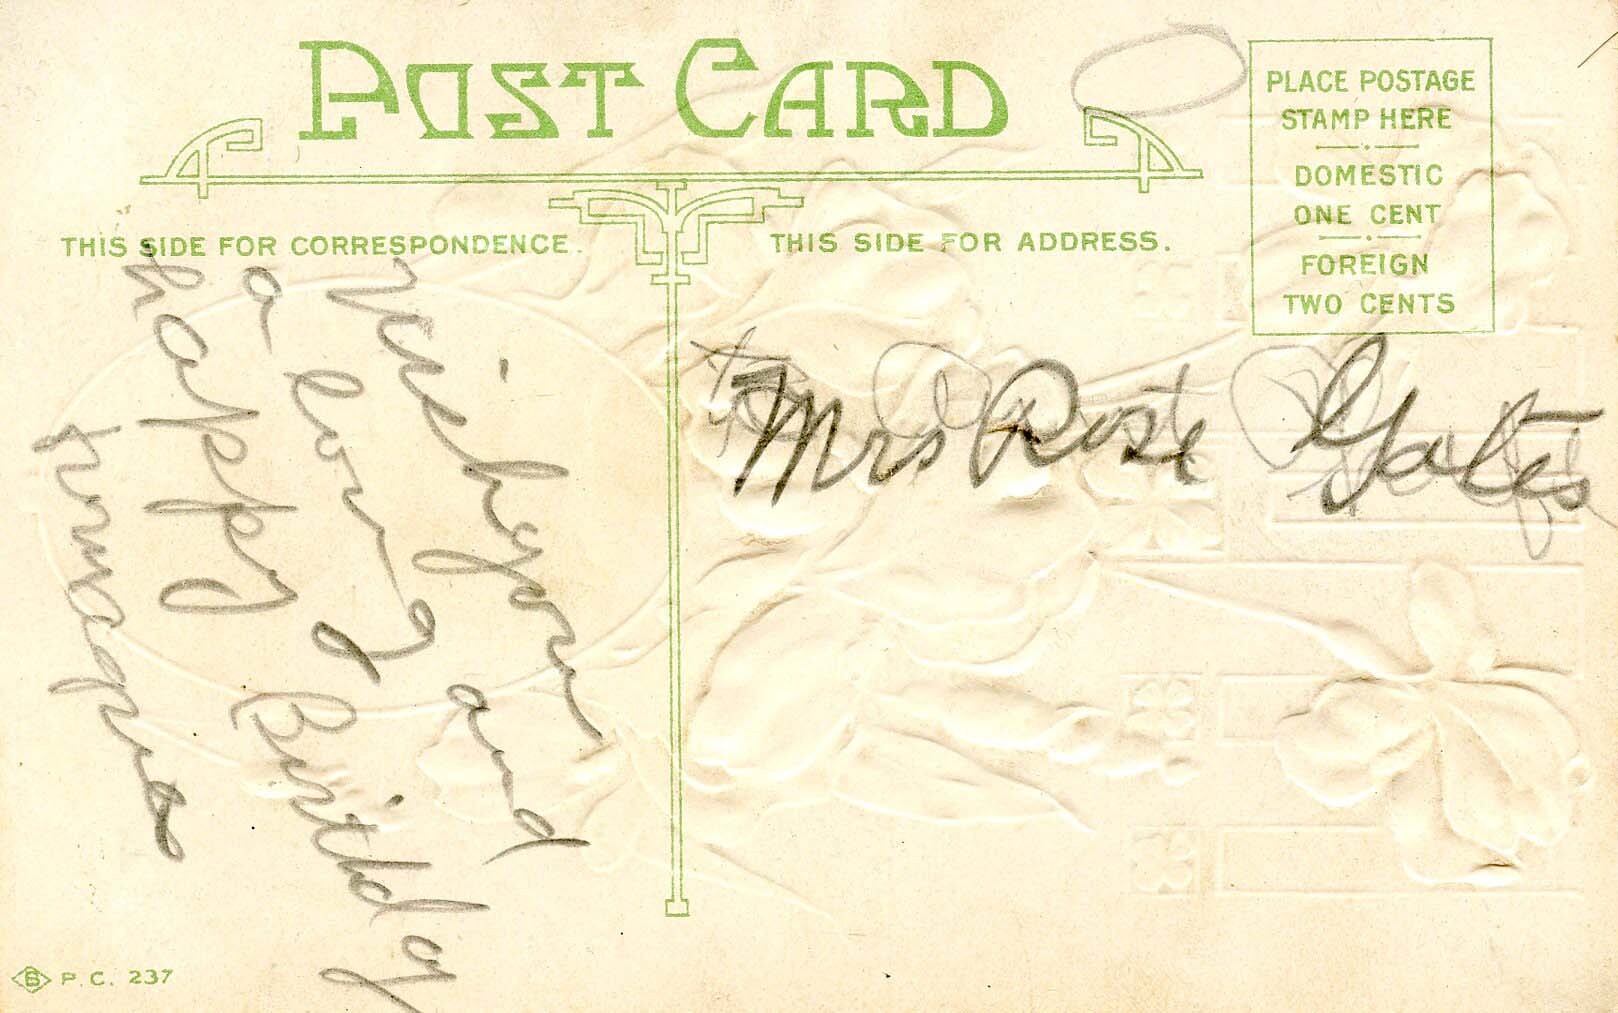 POST CARD
PLACE POSTAGE
STAMP HERE
DOMESTIC
ONE CENT
FOREIGN
TWO CENTS
THIS SIDE FOR CORRESPONDENCE.
THIS SIDE FOR ADDRESS.
Wish you
a long and
happy Birthday
from agnes
Mrs Rose Yates
S P.C. 237